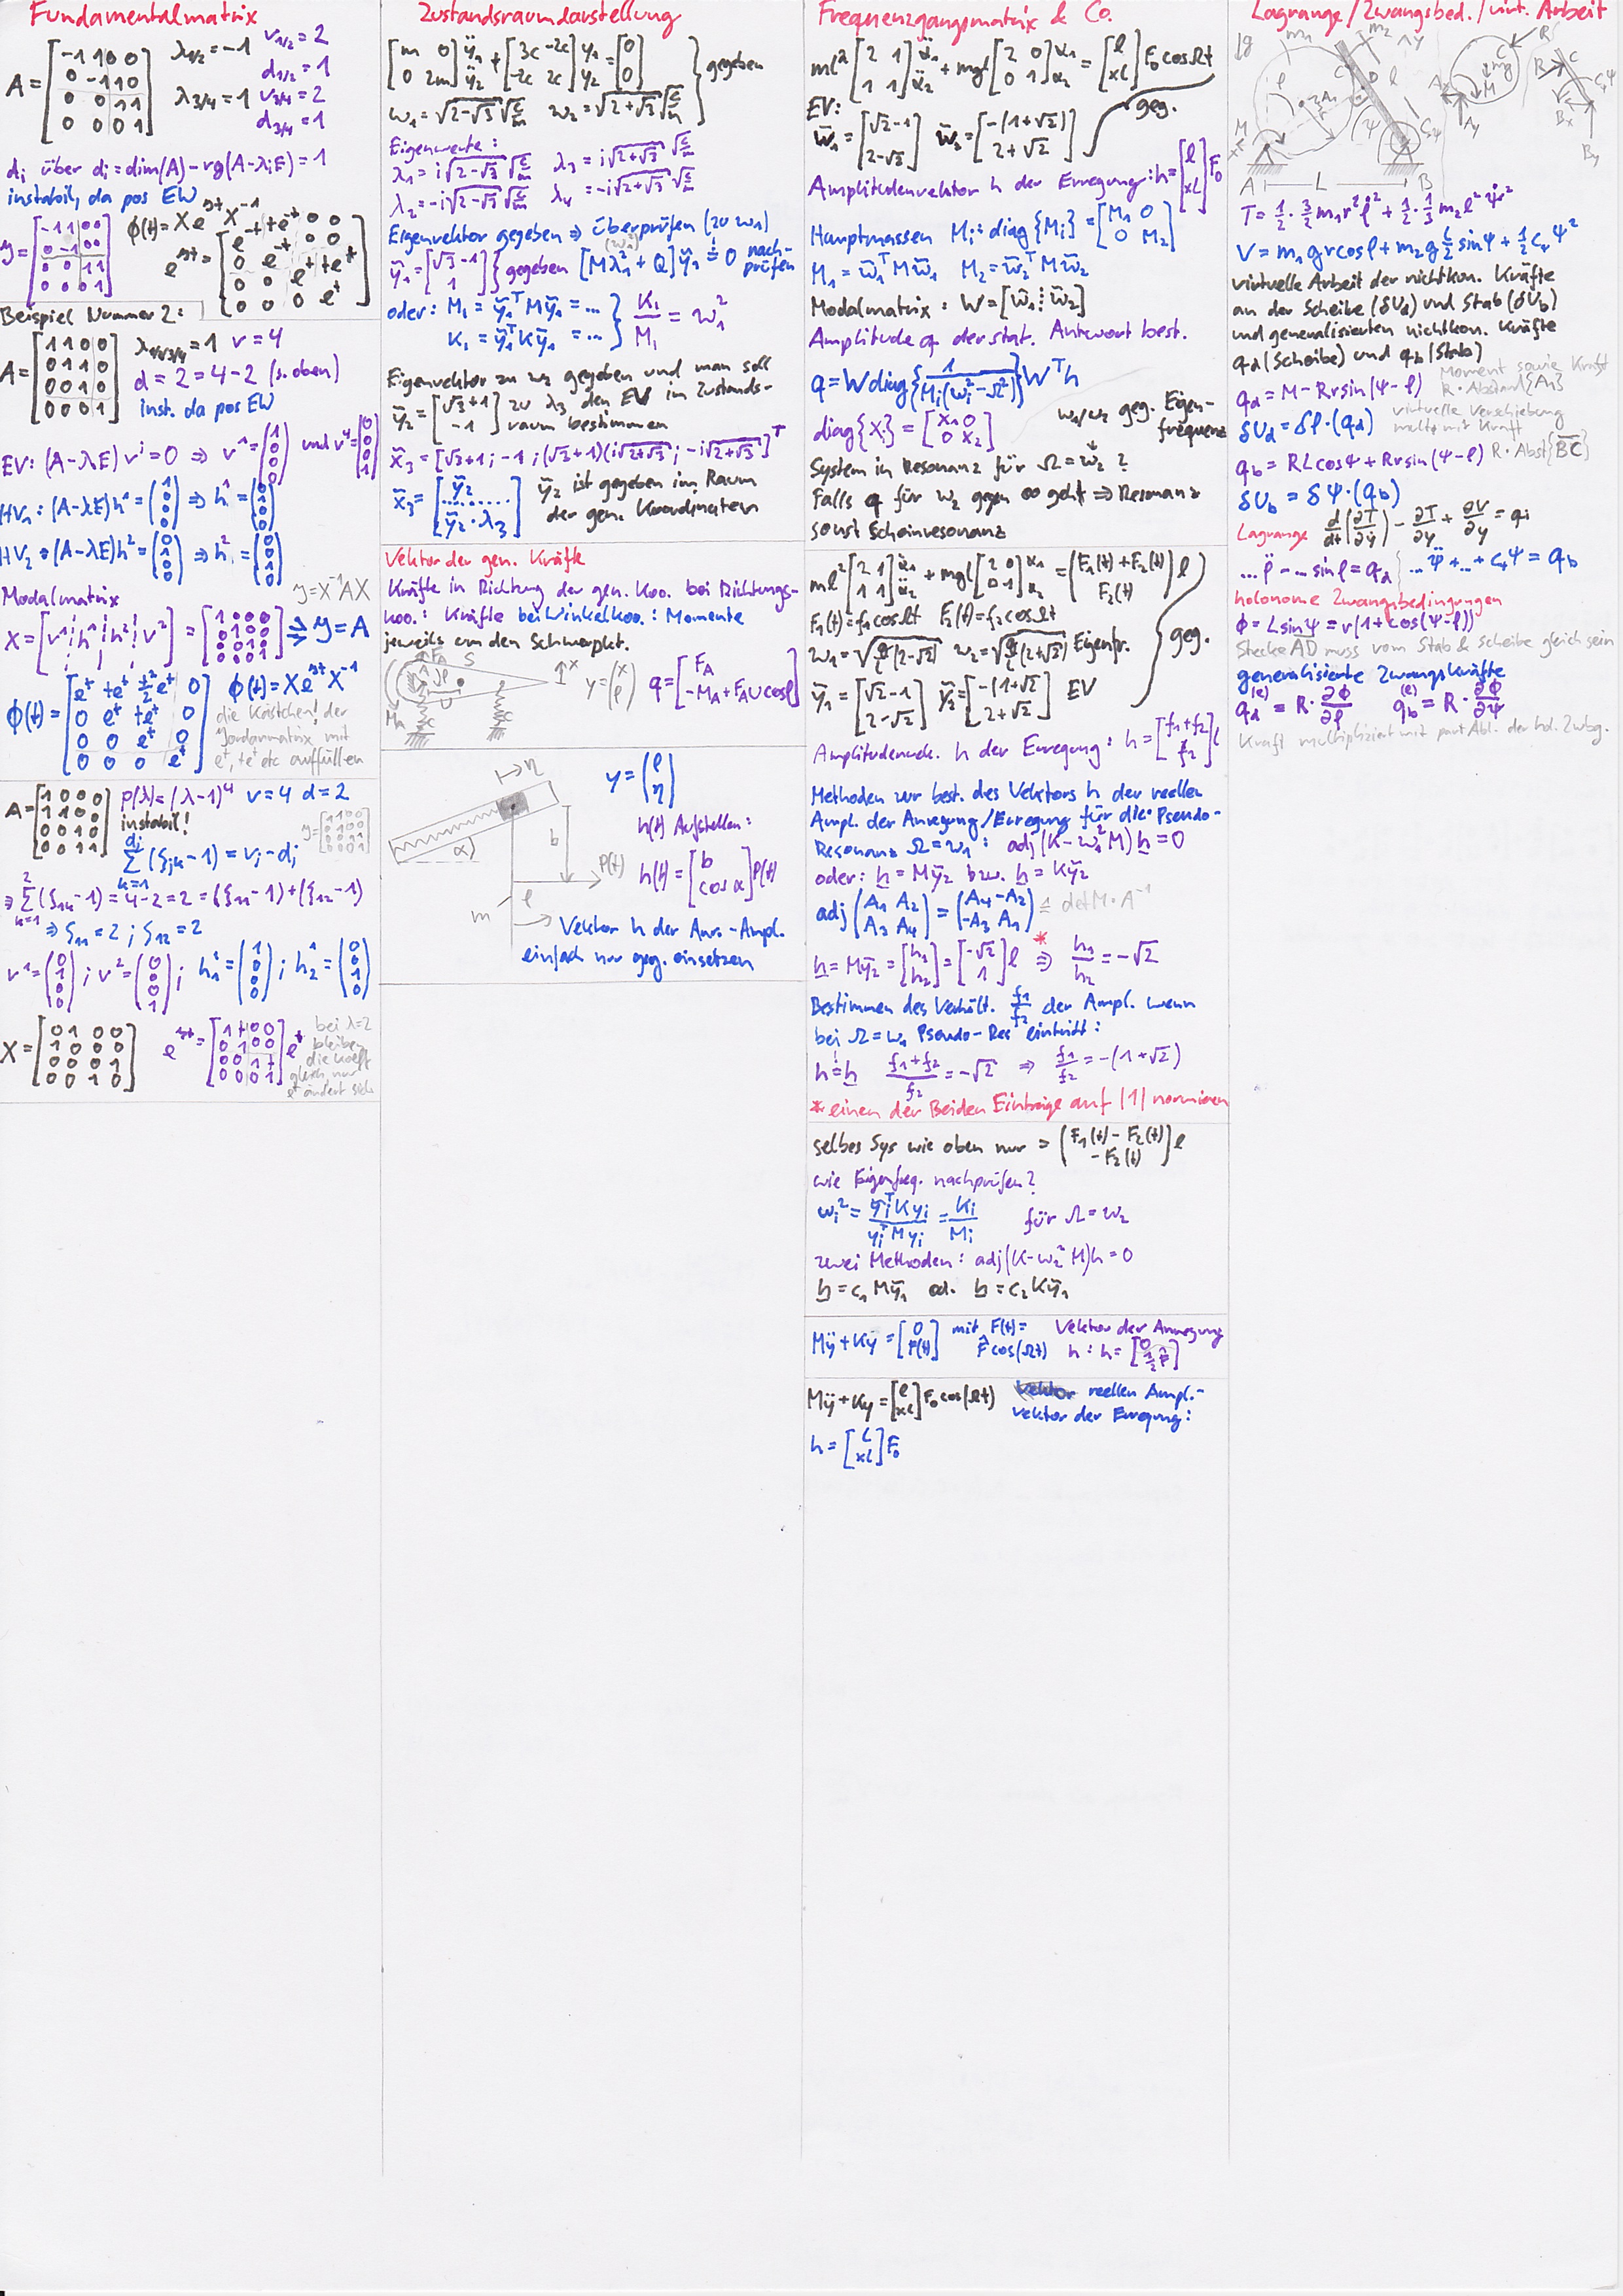 Fundamentalmatrix
A = [-1 1 0 0; 0 -1 1 0; 0 0 1 1; 0 0 0 1]
λ1/2 = -1
v1/2 = 2
d1/2 = 1
λ3/4 = 1
v3/4 = 2
d3/4 = 1
di über di = dim(A) - rg(A-λiE) = 1
instabil, da pos EW
y = [-1 1 0 0; 0 -1 0 0; 0 0 1 1; 0 0 0 1]
ϕ(t) = X e^yt X^-1
e^yt = [e^-t te^-t 0 0; 0 e^-t 0 0; 0 0 e^t te^t; 0 0 0 e^t]
Beispiel Nummer 2:
A = [1 1 0 0; 0 1 1 0; 0 0 1 0; 0 0 0 1]
λ1/2/3/4 = 1 v = 4
d = 2 = 4-2 (s. oben)
inst. da pos EW
EV: (A-λE) v^i = 0 ⇒ v^1 = (1 0 0 0) und v^4 = (0 0 0 1)
HV1: (A-λE)h^1 = (1 0 0 0) ⇒ h^1 = (0 1 0 0)
HV2: (A-λE)h^2 = (0 1 0 0) ⇒ h^2 = (0 0 1 0)
y = X^-1 A X
Modalmatrix
X = [v^1 h^1 h^2 v^2] = [1 0 0 0; 0 1 0 0; 0 0 1 0; 0 0 0 1] ⇒ y = A
ϕ(t) = [e^t te^t t²/2 e^t 0; 0 e^t te^t 0; 0 0 e^t 0; 0 0 0 e^t]
ϕ(t) = X e^yt X^-1
die Kästchen! der
Jordanmatrix mit
e^t, te^t etc auffüllen
A = [1 0 0 0; 1 1 0 0; 0 0 1 0; 0 0 1 1]
p(λ) = (λ-1)^4 v = 4 d = 2
instabil!
y = [1 1 0 0; 0 1 0 0; 0 0 1 1; 0 0 0 1]
di Σ k=1 (ζik - 1) = vi - di
⇒ 2 Σ k=1 (ζ1k - 1) = 4 - 2 = 2 = (ζ11 - 1) + (ζ12 - 1)
⇒ ζ11 = 2 ; ζ12 = 2
v^1 = (0 1 0 0); v^2 = (0 0 0 1); h1^1 = (1 0 0 0); h2^1 = (0 0 1 0)
X = [0 1 0 0; 1 0 0 0; 0 0 0 1; 0 0 1 0]
e^yt = [1 t 0 0; 0 1 0 0; 0 0 1 t; 0 0 0 1] e^t
bei λ=2
bleiben
die Koeff
gleich nur
e^t ändert sich
Zustandsraumdarstellung
[m 0; 0 2m] ÿ1 ÿ2 + [3c -2c; -2c 2c] y1 y2 = [0; 0]
ω1 = √(2-√3) √(c/m) ω2 = √(2+√3) √(c/m)
gegeben
Eigenwerte:
λ1 = i√(2-√3) √(c/m) λ3 = i√(2+√3) √(c/m)
λ2 = -i√(2-√3) √(c/m) λ4 = -i√(2+√3) √(c/m)
Eigenvektor gegeben ⇒ überprüfen (zu ω1)
ỹ1 = [√3-1; 1] gegeben [Mλ1² + Q] ỹ1 = 0 nach-
prüfen
oder: M1 = ỹ1^T M ỹ1 = ...
K1 = ỹ1^T K ỹ1 = ...
K1/M1 = ω1²
Eigenvektor zu ω2 gegeben und man soll
ỹ2 = [√3+1; -1] zu λ3 den EV im Zustands-
raum bestimmen
x̃3 = [√3+1; -1; (√3+1)(i√(2+√3)); -i√(2+√3)]^T
x̃3 = [ỹ2; ỹ2·λ3] ỹ2 ist gegeben im Raum
der gen. Koordinaten
Vektor der gen. Kräfte
Kräfte in Richtung der gen. Koo. bei Richtungs-
koo.: Kräfte bei Winkelkoo.: Momente
jeweils um den Schwerpkt.
FA
S
MA
x
y = (x; φ) q = [FA; -MA + FA u cosφ]
η
α
b
P(t)
m
φ
y = (φ; η)
h(t) Aufstellen:
h(t) = [b; cos α] P(t)
Vektor h der Anr.-Ampl.
einfach nur geg. einsetzen
Frequenzgangsmatrix & Co.
ml² [2 1; 1 1] α̈1 α̈2 + mgl [2 0; 0 1] α1 α2 = [l; xl] F0 cos Ωt
EV:
w̃1 = [√2-1; 2-√2] w̃2 = [-(1+√2); 2+√2]
geg.
Amplitudenvektor h der Erregung: h = [l; xl] F0
Hauptmassen Mi: diag{Mi} = [M1 0; 0 M2]
M1 = w̃1^T M w̃1 M2 = w̃2^T M w̃2
Modalmatrix: W = [w̃1 w̃2]
Amplitude q der stat. Antwort best.
q = W diag{1/(Mi(ωi²-Ω²))} W^T h
diag{Xi} = [X1 0; 0 X2]
ω1/ω2 geg. Eigen-
frequenz
System in Resonanz für Ω = ω2 ?
Falls q für ω2 gegen ∞ geht ⇒ Resonanz
sonst Scheinresonanz
ml² [2 1; 1 1] α̈1 α̈2 + mgl [2 0; 0 1] α1 α2 = (F1(t)+F2(t); F2(t)) l
F1(t) = f1 cosΩt F2(t) = f2 cosΩt
ω1 = √(g/l (2-√2)) ω2 = √(g/l (2+√2)) Eigenfr.
ỹ1 = [√2-1; 2-√2] ỹ2 = [-(1+√2); 2+√2] EV
geg.
Amplitudenvek. h der Erregung: h = [f1+f2; f2] l
Methoden zur best. des Vektors h der reellen
Ampl. der Anregung/Erregung für die Pseudo-
Resonanz Ω = ω1: adj(K-ω1²M) h = 0
oder: h = Mỹ2 bzw. h = Kỹ2
adj (A1 A2; A3 A4) = (A4 -A2; -A3 A1) ≙ det M · A^-1
h = Mỹ2 = [h1; h2] = [-√2; 1] l *⇒ h1/h2 = -√2
Bestimmen des Verhält. f1/f2 der Ampl. wenn
bei Ω = ω1 Pseudo-Res eintritt:
h = h (f1+f2)/f2 = -√2 ⇒ f1/f2 = -(1+√2)
* einen der Beiden Einträge auf |1| normieren
selbes Sys wie oben nur = (F1(t) - F2(t); -F2(t)) l
wie Eigenfreq. nachprüfen?
ωi² = (ỹi^T K yi)/(yi^T M yi) = Ki/Mi für Ω = ω2
zwei Methoden: adj(K-ω2²M)h = 0
h = c1 Mỹ1 od. h = c2 Kỹ1
Mÿ + Ky = [0; F(t)] mit F(t) = F̂ cos(Ωt) Vektor der Anregung
h: h = [0; ½ F̂]
Mÿ + Ky = [l; xl] F0 cos(Ωt) reellen Ampl.-
vektor der Erregung:
h = [l; xl] F0
Lagrange/Zwangsbed./virt. Arbeit
g
m1
m2
y
R
C
mg
M
Ay
Bx
By
A
L
B
T = ½ · 3/2 m1 r² φ̇² + ½ · ⅓ m2 l² ψ̇²
V = m1 g r cosφ + m2 g l/2 sinψ + ½ cr ψ²
virtuelle Arbeit der nichtkon. Kräfte
an der Scheibe (δUd) und Stab (δUb)
und generalisierten nichtkon. Kräfte
qd (Scheibe) und qb (Stab)
qd = M - Rr sin(ψ-φ)
Moment sowie Kraft
R · Abstand {A1}
δUd = δφ · (qd)
virtuelle Verschiebung
malt mit Kraft
qb = RL cosψ + Rr sin(ψ-φ) R · Abst {BC}
δUb = δψ · (qb)
Lagrange d/dt (∂T/∂ẏ) - ∂T/∂y + ∂V/∂y = qi
... φ̈ - ... sinφ = qd ... ψ̈ + ... + cr ψ = qb
holonome Zwangsbedingungen
ϕ = L sinψ = r(1 + cos(ψ-φ))
Strecke AD muss vom Stab & Scheibe gleich sein
generalisierte Zwangskräfte
qd^(e) = R · ∂ϕ/∂φ qb^(e) = R · ∂ϕ/∂ψ
Kraft multipliziert mit part Abl. der hol. Zwbg.